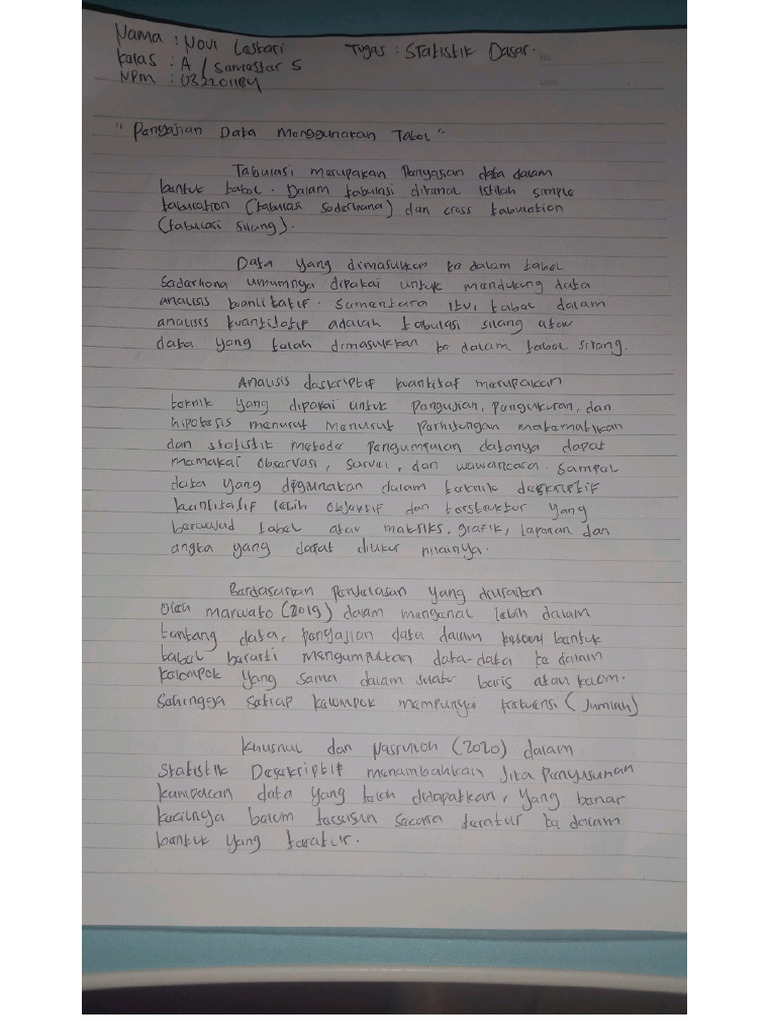 Nama : Novi Lestari Tugas : Statistik Dasar.
Kelas : A / Semester 5
NPM : 032201184
"Penyajian Data Menggunakan Tabel"
Tabulasi merupakan Penyajian data dalam
bentuk tabel. Dalam tabulasi dikenal istilah simple
tabulation (tabulasi sederhana) dan cross tabulation
(tabulasi silang).
Data yang dimasukkan ke dalam tabel
sederhana umumnya dipakai untuk mendukung data
analisis kuanlitatif. Sementara itu, tabel dalam
analisis kuantitatif adalah tabulasi silang atau
data yang telah dimasukkan ke dalam tabel silang.
Analisis deskriptif kuantitaf merupakan
teknik yang dipakai untuk pengujian, pengukuran, dan
hipotesis menurut menurut perhitungan matematikan
dan statistik metode pengumpulan datanya dapat
memakai observasi, survei, dan wawancara. Sampel
data yang digunakan dalam teknik deskriptif
kuantitatif lebih objektif dan terstruktur yang
berwujud tabel atau matriks, grafik, laporan dan
angka yang dapat diukur nilainya.
Berdasarkan penjelasan yang diuraikan
Oleh Marwato (2019) dalam mengenal lebih dalam
tentang data, penyajian data dalam bentuk
tabel berarti mengumpulkan data-data ke dalam
kelompok yang sama dalam suatu baris atau kolom.
Sehingga setiap kelompok mempunyai frekuensi (Jumlah)
Khusnul dan Nasruloh (2020) dalam
Statistik Deskriptif menambahkan Jika penyusunan
kumpulan data yang telah didapatkan, yang benar
kecilnya belum tersusun secara teratur ke dalam
bentuk yang teratur.